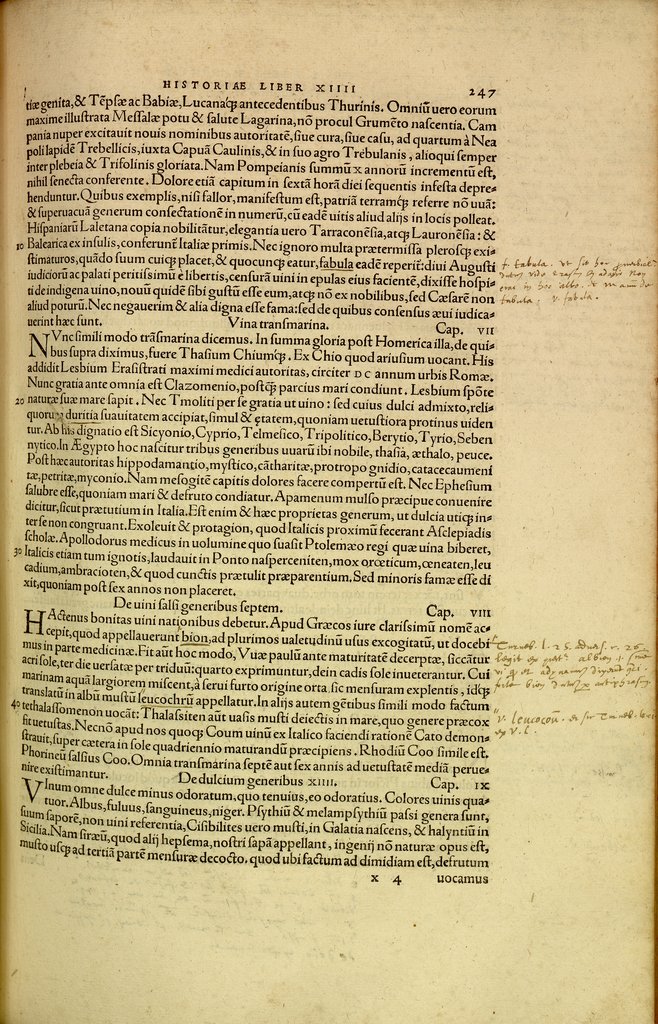 HISTORIAE LIBER XIIII 247
tiæ genita, & Tẽpsæ ac Babiæ, Lucanaq́ꝫ antecedentibus Thurinis. Omniũ uero eorum
maxime illustrata Messalæ potu & salute Lagarina, nõ procul Grumẽto nascentia. Cam
pania nuper excitauit nouis nominibus autoritatẽ, siue cura, siue casu, ad quartum à Nea
poli lapidẽ Trebellicis, iuxta Capuã Caulinis, & in suo agro Trebulanis, alioqui semper
inter plebeia & Trifolinis gloriata. Nam Pompeianis summũ x annorũ incrementũ est,
nihil senecta conferente. Dolore etiã capitum in sextã horã diei sequentis infesta depre-
henduntur. Quibus exemplis, nisi fallor, manifestum est, patriã terramq́ꝫ referre nõ uuã:
& superuacuã generum consectationẽ in numerũ, cũ eadẽ uitis aliud alijs in locis polleat.
Hispaniarũ Laletana copia nobilitãtur, elegantia uero Tarraconẽsia, atq́ꝫ Lauronẽsia: &
10 Balearica ex insulis, conferunt Italiæ primis. Nec ignoro multa prætermissa plerosq́ꝫ exi-
stimaturos, quãdo suum cuiq́ꝫ placet, & quocunq́ꝫ eatur, fabula eadẽ reperit̃: diui Augusti
iudiciorũ ac palati peritissimũ è libertis, censurã uini in epulas eius facientẽ, dixisse hospi-
ti de indigena uino, nouũ quidẽ sibi gustũ esse eum, atq́ꝫ nõ ex nobilibus, sed Cæsarẽ non
aliud poturũ. Nec negauerim & alia digna esse fama: sed de quibus consensus æui iudica-
uerint hæc sunt. Vina transmarina. Cap. VII
NVnc simili modo trãsmarina dicemus. In summa gloria post Homerica illa, de qui-
bus supra diximus, fuere Thasium Chiumq́ꝫ. Ex Chio quod ariusium uocant. His
addidit Lesbium Erasistrati maximi medici autoritas, circiter DC annum urbis Romæ.
Nunc gratia ante omnia est Clazomenio, postq̃ꝫ parcius mari condiunt. Lesbium spõte
20 naturæ suæ mare sapit. Nec Tmoliti per se gratia ut uino: sed cuius dulci admixto, reli-
quorũ duritia suauitatem accipiat, simul & ętatem, quoniam uetustiora protinus uiden
tur. Ab his dignatio est Sicyonio, Cyprio, Telmesico, Tripolitico, Berytio, Tyrio, Seben
nytico. In Ægypto hoc nascitur tribus generibus uuarũ ibi nobile, thasia, æthalo, peuce.
Post hæc autoritas hippodamantio, mystico, cãtharitæ, protropo gnidio, catacecaumeni
tæ, petritæ, myconio. Nam mesogitẽ capitis dolores facere compertũ est. Nec Ephesium
salubre esse, quoniam mari & defruto condiatur. Apamenum mulso præcipue conuenire
dicitur, sicut prætutium in Italia. Est enim & hæc proprietas generum, ut dulcia utiq́ꝫ in-
ter se non congruant. Exoleuit & protagion, quod Italicis proximũ fecerant Asclepiadis
scholæ. Apollodorus medicus in uolumine quo suasit Ptolemæo regi quæ uina biberet,
30 Italicis etiam tum ignotis, laudauit in Ponto nasperceniten, mox orœticum, œneaten, leu
cadium, ambracioten, & quod cunctis prætulit præparentium. Sed minoris famæ esse di
xit, quoniam post sex annos non placeret.
De uini salsi generibus septem. Cap. VIII
HActenus bonitas uini nationibus debetur. Apud Græcos iure clarissimũ nomẽ ac=
cepit, quod appellauerunt bion, ad plurimos ualetudinũ usus excogitatũ, ut docebi
mus in parte medicinæ. Fit aũt hoc modo, Vuæ paulũ ante maturitatẽ decerptæ, siccãtur
acri sole, ter die uersatæ per triduũ: quarto exprimuntur, dein cadis sole inueterantur. Cui
marinam aquã largiorem miscent, à serui furto origine orta. sic mensuram explentis, idq́ꝫ
translatũ in albũ mustũ leucochrũ appellatur. In alijs autem gẽtibus simili modo factum
40 tethalassomenon uocãt: Thalassiten aũt uasis musti deiectis in mare, quo genere præcox
fit uetustas. Necnõ apud nos quoq́ꝫ Coum uinũ ex Italico faciendi rationẽ Cato demons-
trauit, super cætera in sole quadriennio maturandũ præcipiens. Rhodiũ Coo simile est.
Phorineũ salsius Coo. Omnia transmarina septẽ aut sex annis ad uetustatẽ mediã perue=
nire existimantur. De dulcium generibus XIIII. Cap. IX
VInum omne dulce minus odoratum, quo tenuius, eo odoratius. Colores uinis qua-
tuor. Albus, fuluus, sanguineus, niger. Psythiũ & melampsythiũ passi genera sunt,
suum saporẽ, non uini referentia, Cisibilites uero musti, in Galatia nascens, & halyntiũ in
Sicilia. Nam siræũ, quod alij hepsema, nostri sapã appellant, ingenij nõ naturæ opus est,
musto usq́ꝫ ad tertiã partẽ mensuræ decocto. quod ubi factum ad dimidiam est, defrutum
x 4 uocamus